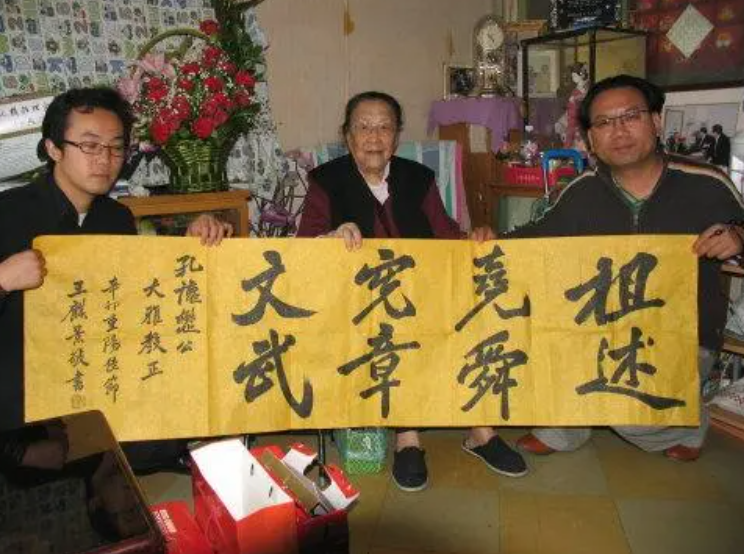 祖述
堯舜
宪章
文武
孔德懋公
大雅教正
辛卯重陽佳節
王麒景敬書